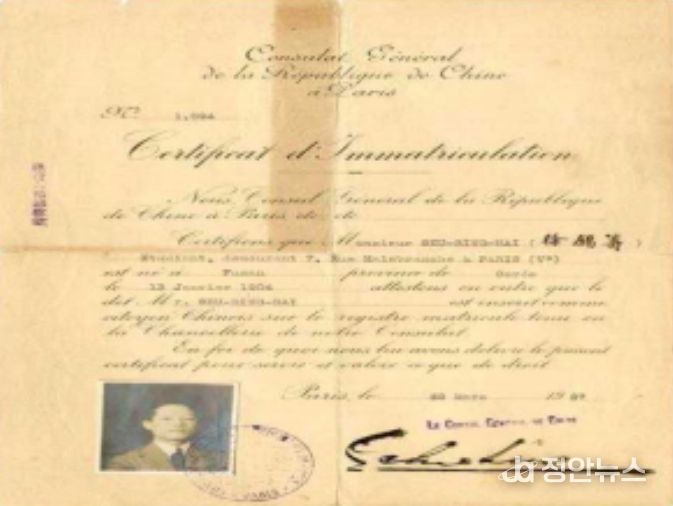 Consulat Général
de la République de Chine
à Paris
N°
Certificat d'Immatriculation
Nous, Consul Général de la République
de Chine à Paris
Certifions que Monsieur SEU-RING-HAI (徐嶺海)
Etudiant, demeurant 7, Rue Malebranche à PARIS (Vº)
est né à Fusan province de Corée
le 13 Janvier 1904 attestons en outre que le
dit Mr. SEU-RING-HAI est inscrit comme
citoyen Chinois sur le registre matricule tenu en
la Chancellerie de notre Consulat.
En foi de quoi nous lui avons délivré le présent
certificat pour servir et valoir ce que de droit
Paris, le Mars 19
Le Consul Général de Chine
정안뉴스